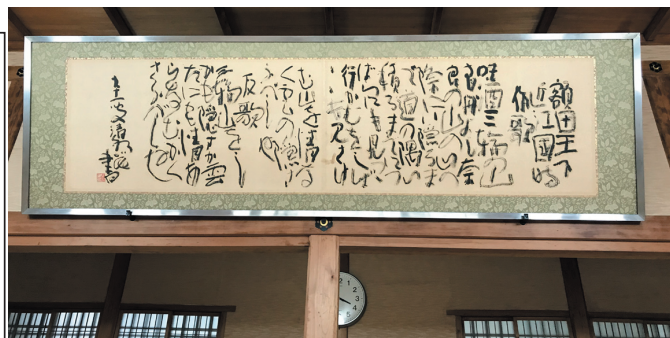 額田王下
近江國時
作歌
味酒三輪の山
青丹よし奈
良の山の山の
際にい隠るま
で道の隅い
積るまでにつ
ばらにも見つつ
行かむをしば
しばも見さけ
む山を情なく
くもの隠さふ
べしや
反歌
三輪山をし
かも隠すか雲
だにも情あ
らなむかく
さふべしや
書
2
3
4
5
6